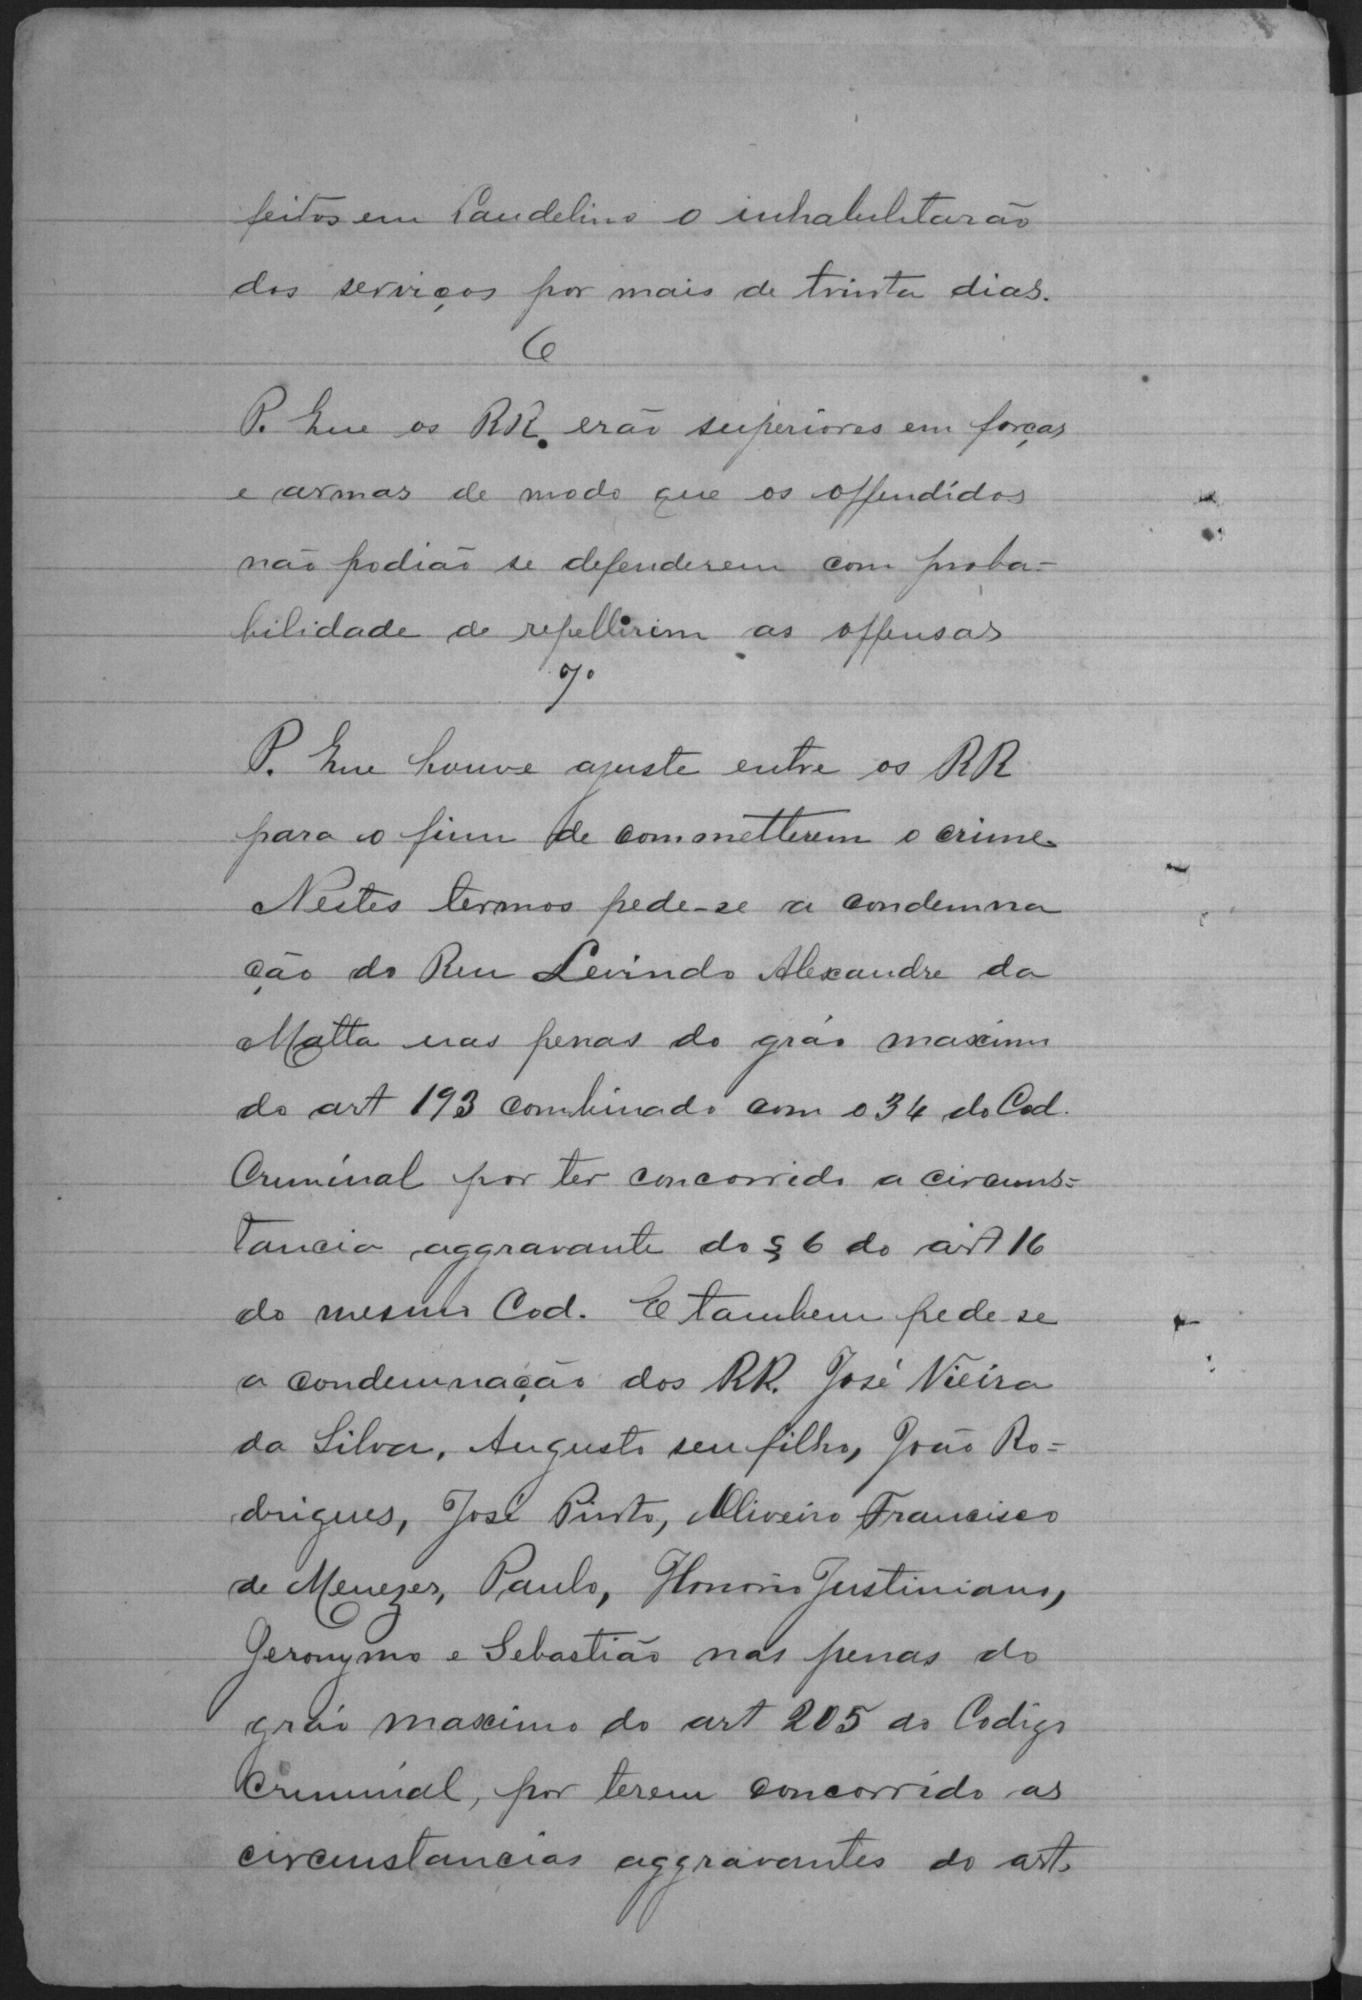 feitos em Laudelino o inhabilitarão
dos serviços por mais de trinta dias.
6
P. Que os RR. erão superiores em forças
e armas de modo que os offendidos
não podião se defenderem com proba=
bilidade de repellirem as offensas
7º
P. Que houve ajuste entre os RR
para o fim de commetterem o crime.
Nestes termos pede-se a condemna
ção do Reu Levindo Alexandre da
Matta nas penas do gráo maximo
do art 193 combinado com o 34 do Cod.
Criminal por ter concorrido a circums=
tancia aggravante do § 6 do art 16
do mesmo Cod. E tambem pede-se
a condemnação dos RR. José Vieira
da Silva, Augusto seu filho, João Ro=
drigues, José Pinto, Oliveiro Francisco
de Menezes, Paulo, Honorio Justiniano,
Jeronymo e Sebastião nas penas do
gráo maximo do art 205 do Codigo
Criminal, por terem concorrido as
circunstancias aggravantes do art.